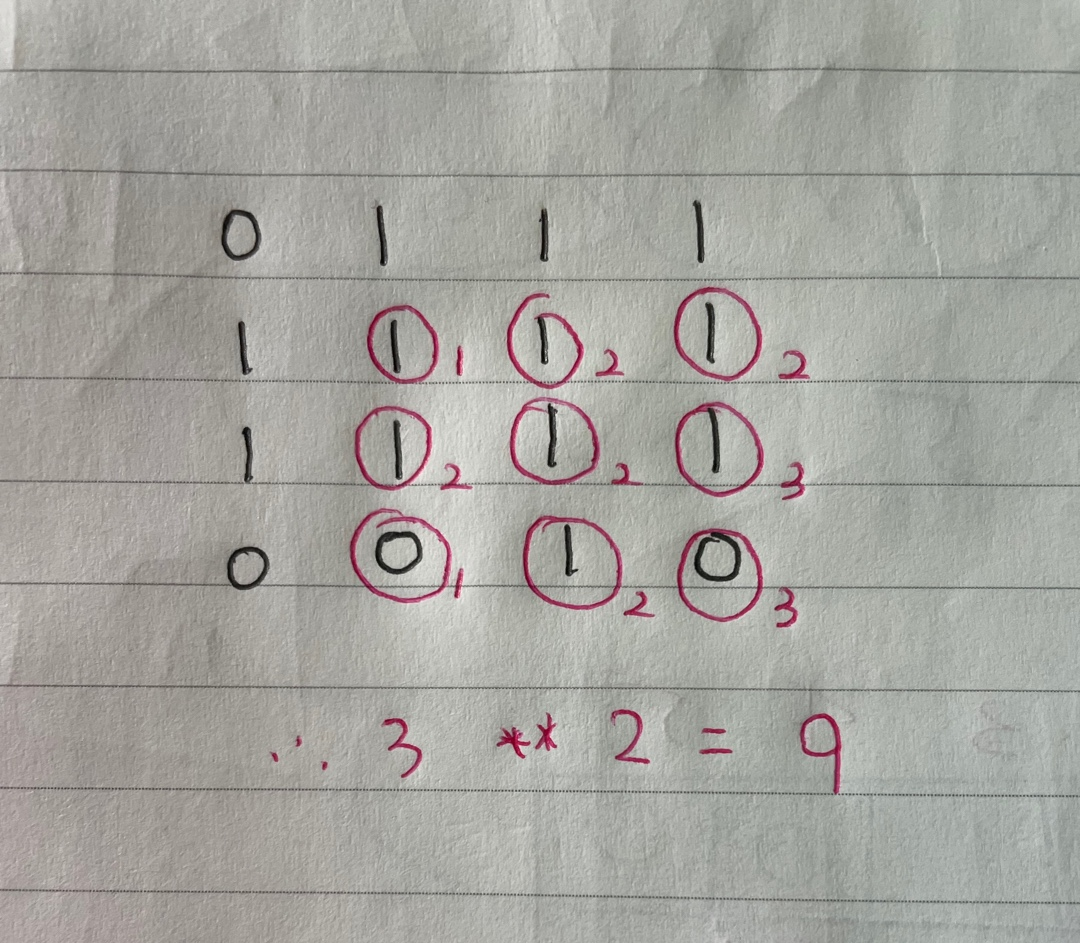 0 1 1 1
1 1 1 1 2 1 2
1 1 2 1 2 1 3
0 0 1 1 2 0 3
∴ 3 ** 2 = 9